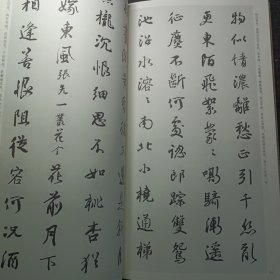 物似情濃離愁正引千絲亂
更東陌飛絮蒙蒙嘶騎漸遥
征塵不斷何處認郎踪雙鴛
池沼水溶溶南北小橈通梯
櫳沉恨細思不如桃杏猶
嫁東風 張先一叢花令 花前月下
相逢苦恨阻從容何況酒